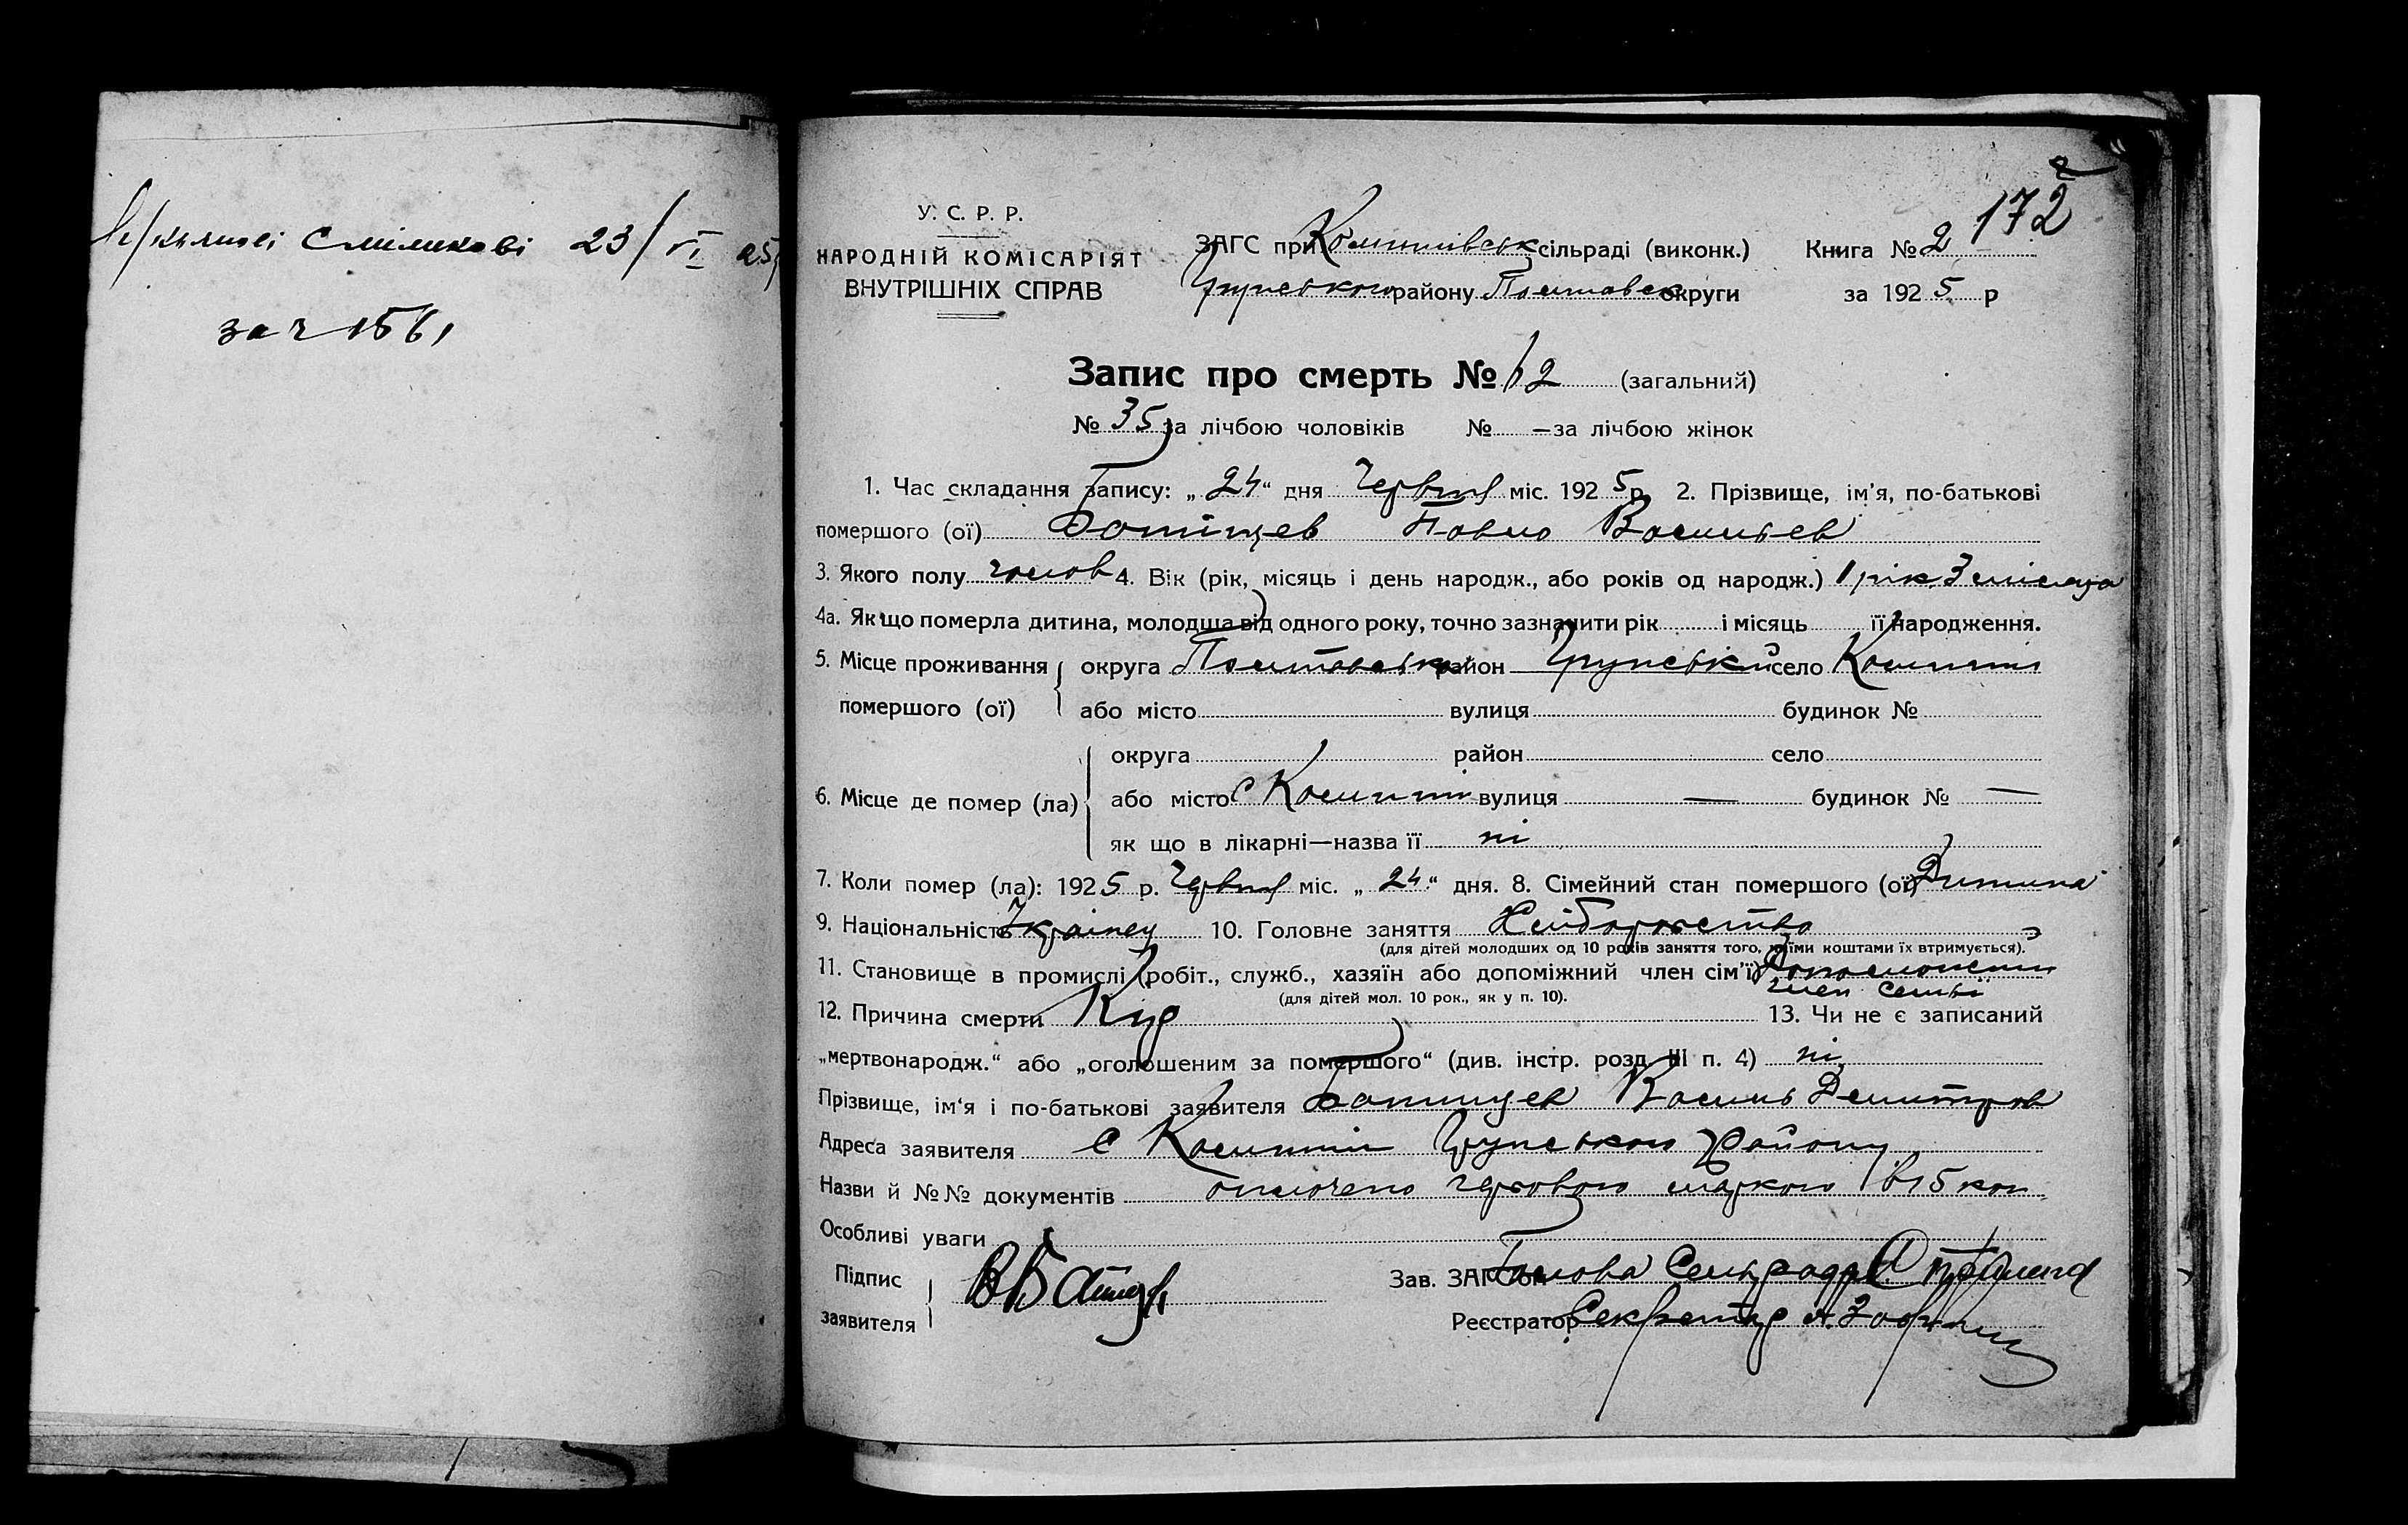 23/VI 25
за ч 1561
172
У. С. Р. Р.
НАРОДНІЙ КОМІСАРІЯТ
ВНУТРІШНІХ СПРАВ
ЗАГС при Комишівськ сільраді (виконк.) Книга № 2
Грунського району Полтавськ округи за 1925 р
Запис про смерть № 62 (загальний)
№ 35 за лічбою чоловіків № — за лічбою жінок
1. Час складання запису: „24“ дня Червня міс. 1925 р. 2. Прізвище, ім’я, по-батькові
помершого (ої) Батіщев Павло Васильев
3. Якого полу чолов 4. Вік (рік, місяць і день народж., або років од народж.) 1 рік 3 місяця
4а. Як що померла дитина, молодша від одного року, точно зазначити рік і місяць її народження.
5. Місце проживання округа Полтавська район Грунський село Комиші
помершого (ої) або місто вулиця будинок №
округа район село
6. Місце де помер (ла) або місто с Комиші вулиця — будинок № —
як що в лікарні—назва її ні
7. Коли помер (ла): 1925 р. Червня міс. „24“ дня. 8. Сімейний стан помершого (ої) Дитина
9. Національність Українец 10. Головне заняття Хліборобство
(для дітей молодших од 10 років заняття того, чиїми коштами їх втримується).
11. Становище в промислі (робіт., служб., хазяїн або допоміжний член сім’ї)
член семьї
(для дітей мол. 10 рок., як у п. 10).
12. Причина смерти Кір 13. Чи не є записаний
„мертвонародж.“ або „оголошеним за помершого“ (див. інстр. розд. III п. 4) ні
Прізвище, ім‘я і по-батькові заявителя Батищев Василь Дмитров
Адреса заявителя с Комиші Грунського Району
Назви й №№ документів оплочено гербовою маркою в 15 коп
Особливі уваги
Підпис
заявителя
Зав. ЗАГС‘ом Голова Сельради
Реєстратор Секретар